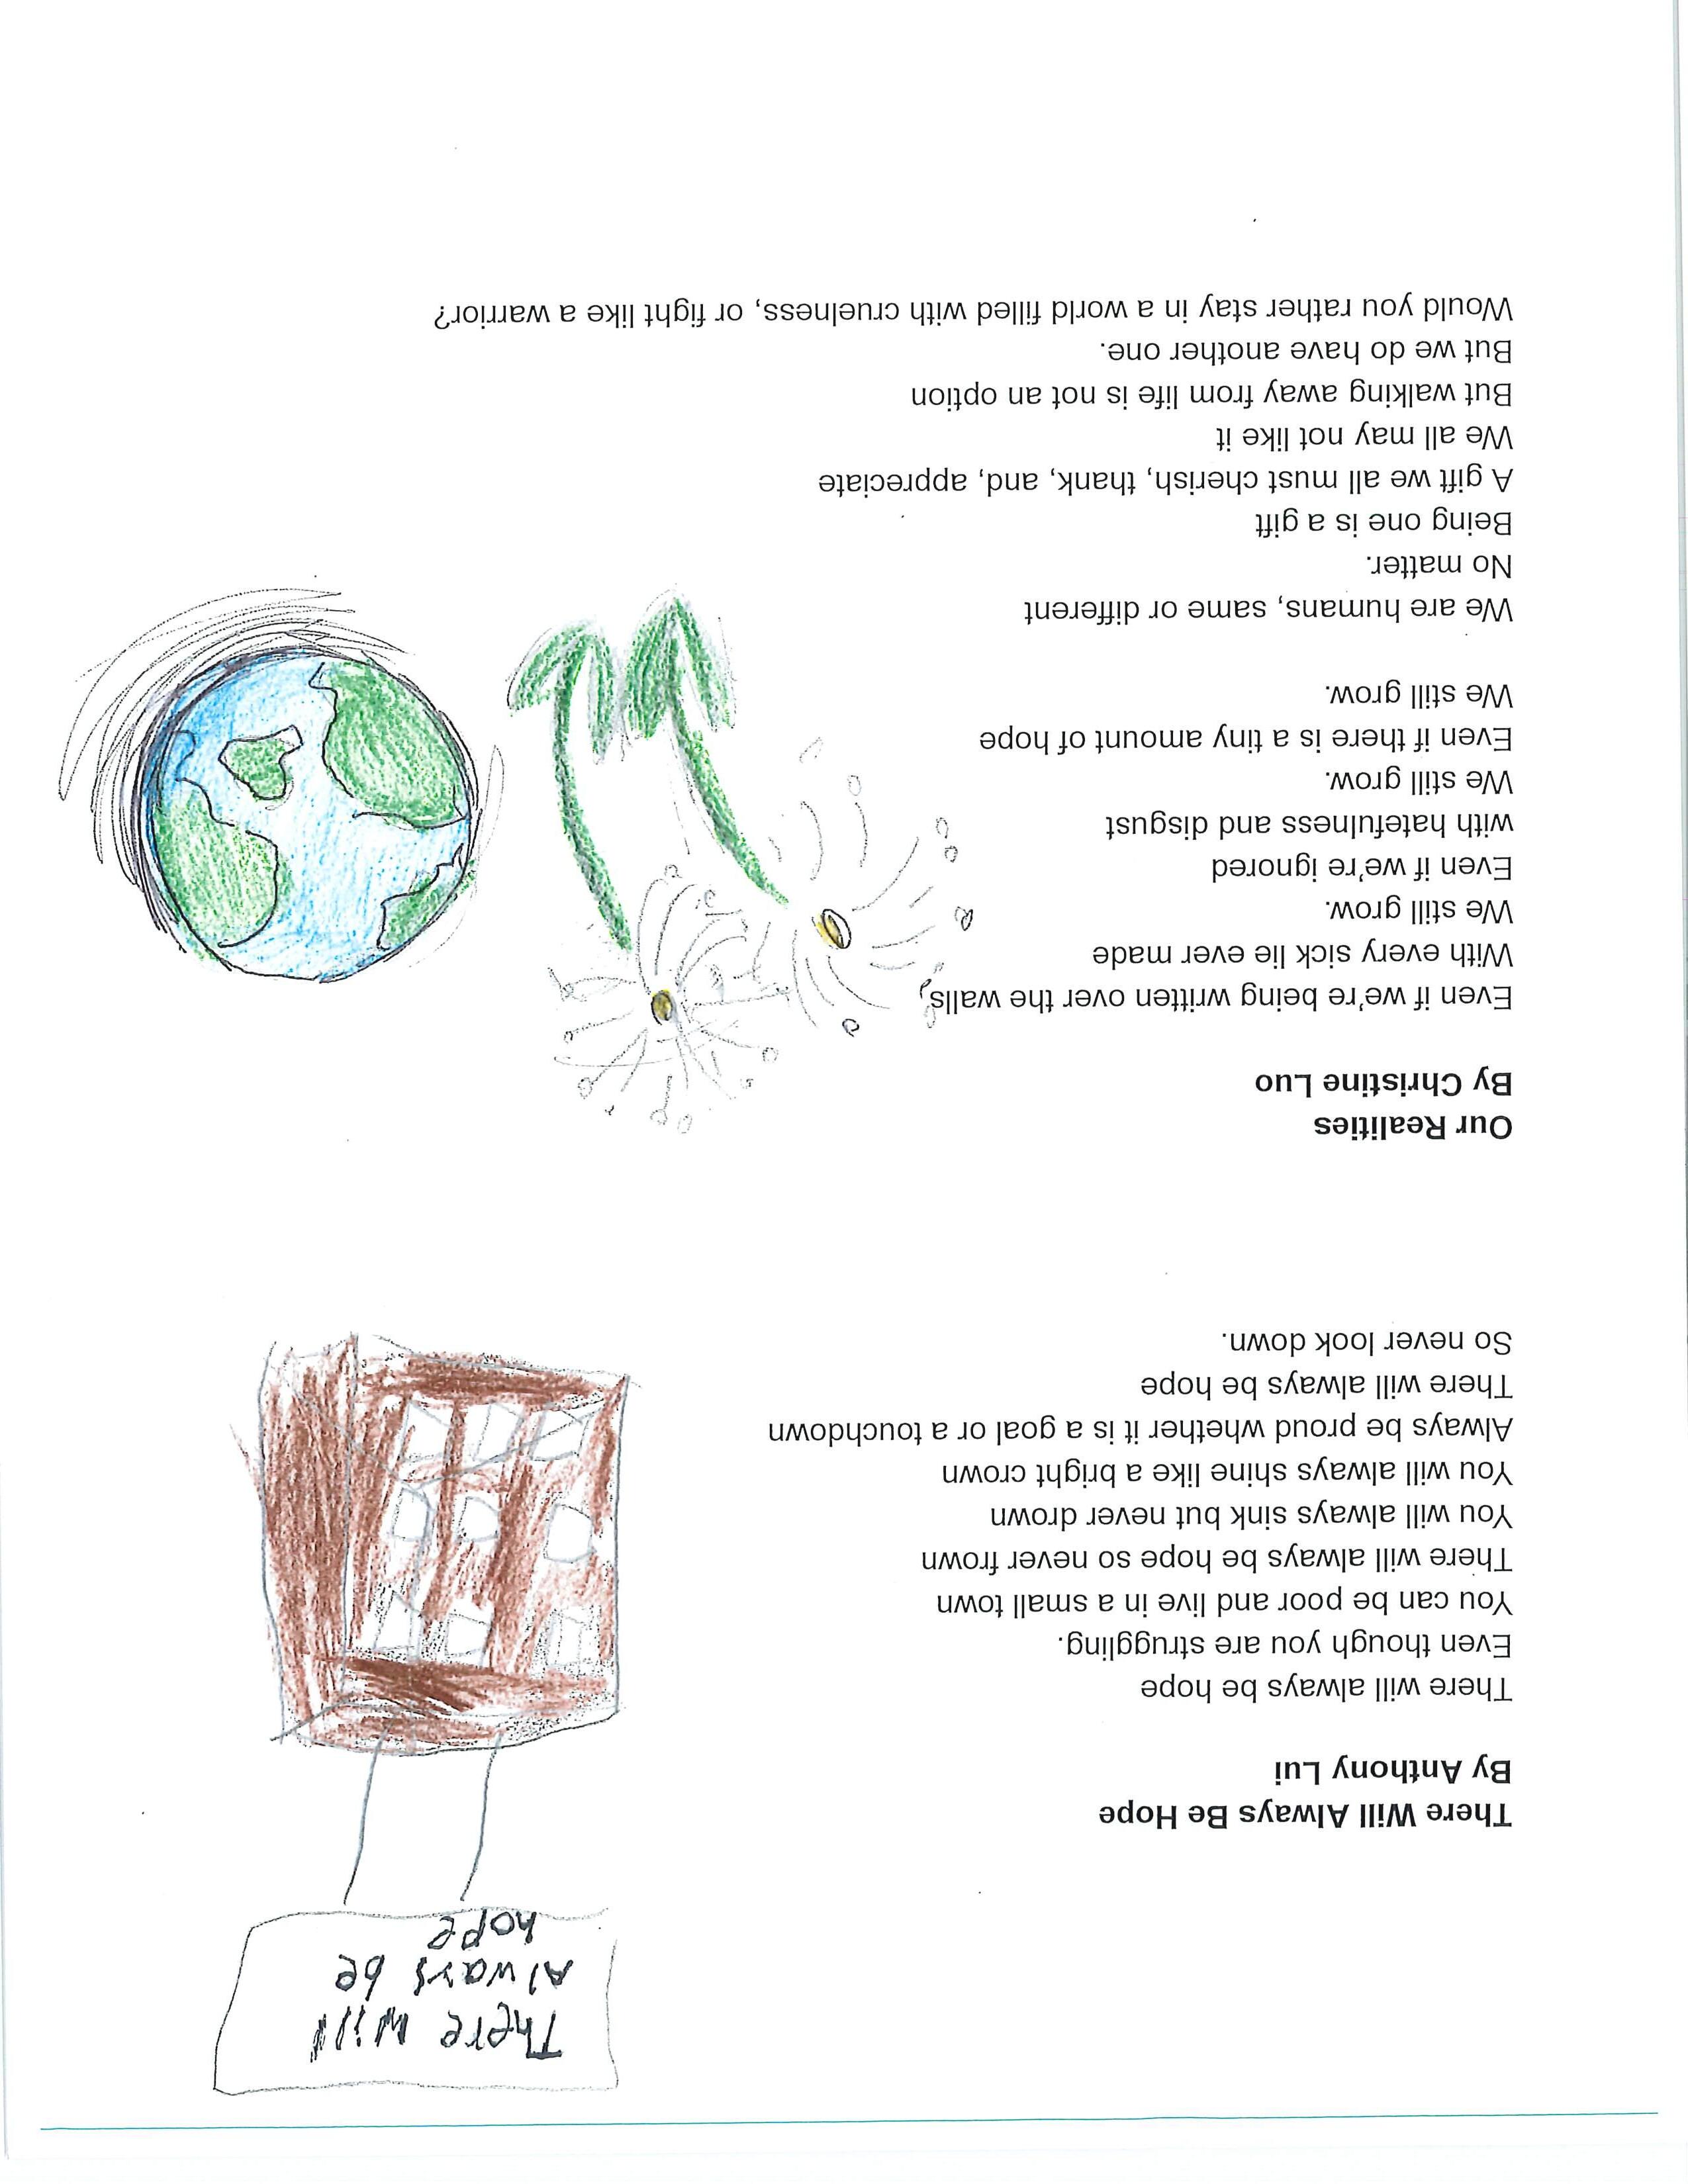 There will
Always be
hope
There Will Always Be Hope
By Anthony Lui
There will always be hope
Even though you are struggling.
You can be poor and live in a small town
There will always be hope so never frown
You will always sink but never drown
You will always shine like a bright crown
Always be proud whether it is a goal or a touchdown
There will always be hope
So never look down.
Our Realities
By Christine Luo
Even if we're being written over the walls,
With every sick lie ever made
We still grow.
Even if we're ignored
with hatefulness and disgust
We still grow.
Even if there is a tiny amount of hope
We still grow.
We are humans, same or different
No matter.
Being one is a gift
A gift we all must cherish, thank, and, appreciate
We all may not like it
But walking away from life is not an option
But we do have another one.
Would you rather stay in a world filled with cruelness, or fight like a warrior?